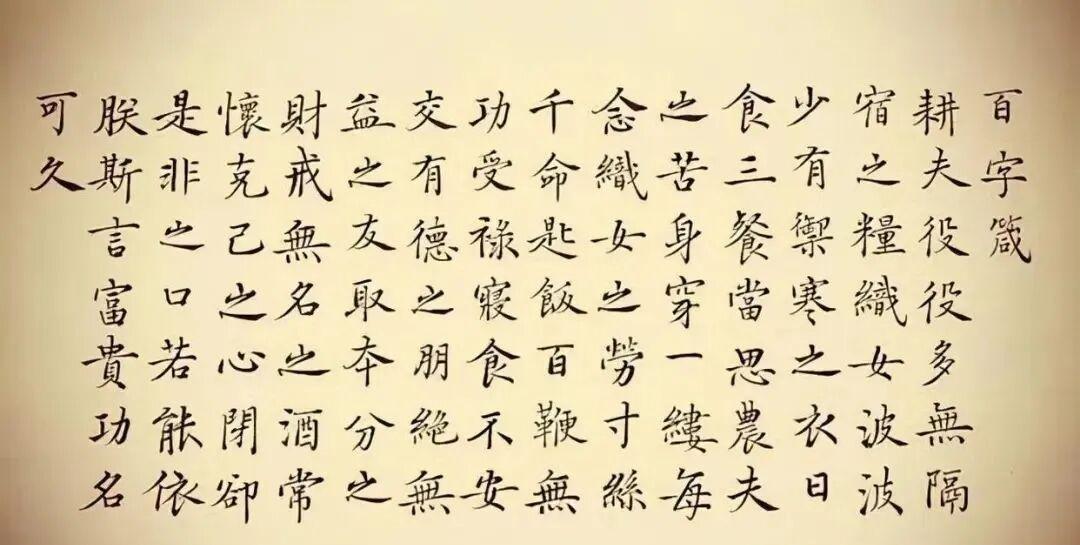 百字箴
耕夫役役多無隔
宿之糧織女波波
少有禦寒之衣日
食三餐當思農夫
之苦身穿一縷每
念織女之勞寸絲
千命匙飯百鞭無
功受祿寢食不安
交有德之朋絕無
益之友取本分之
財戒無名之酒常
懷克己之心閉卻
是非之口若能依
朕斯言富貴功名
可久